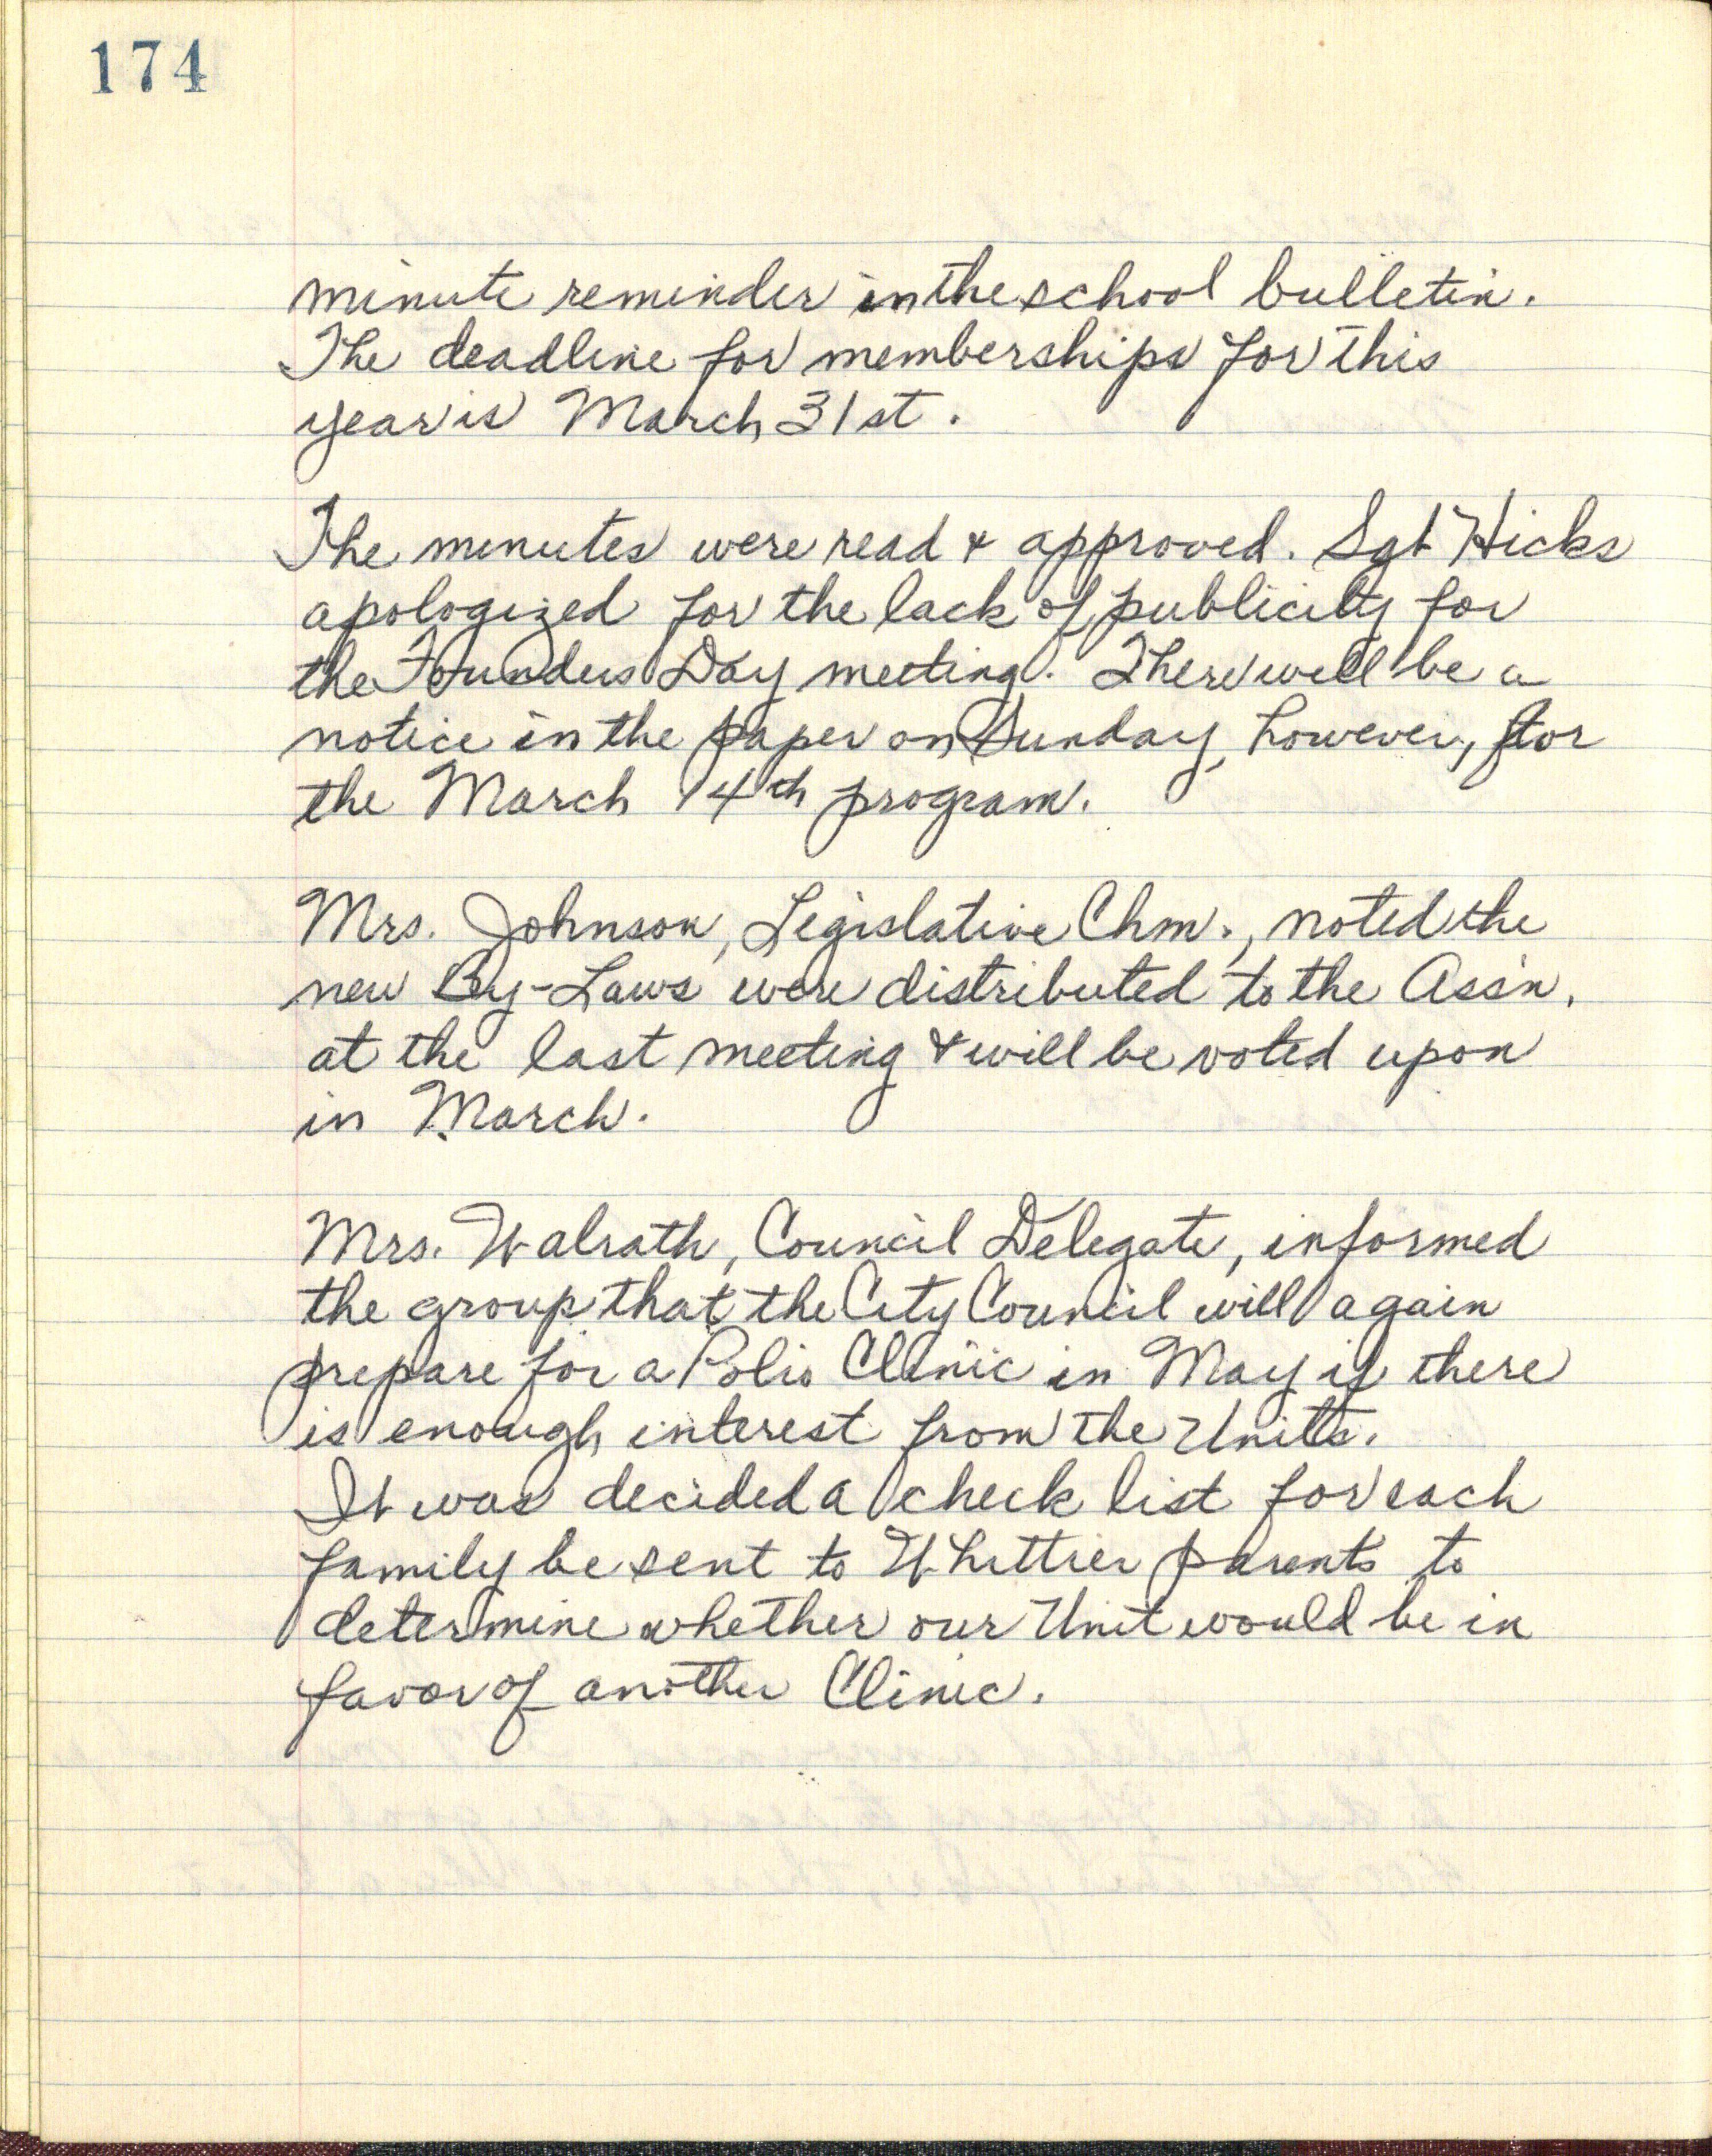 174
minute reminder in the school bulletin.
The deadline for memberships for this
year is March 31st.
The minutes were read & approved. Sgt Hicks
apologized for the lack of publicity for
the Founders Day meeting. There will be a
notice in the paper on Sunday, however, for
the March 14th program.
Mrs. Johnson, Legislative Chm., noted the
new By-Laws were distributed to the Ass'n.
at the last meeting & will be voted upon
in March.
Mrs. Walrath, Council Delegate, informed
the group that the City Council will again
prepare for a Polio Clinic in May if there
is enough interest from the Units.
It was decided a check list for each
family be sent to Whittier parents to
determine whether our Unit would be in
favor of another Clinic.